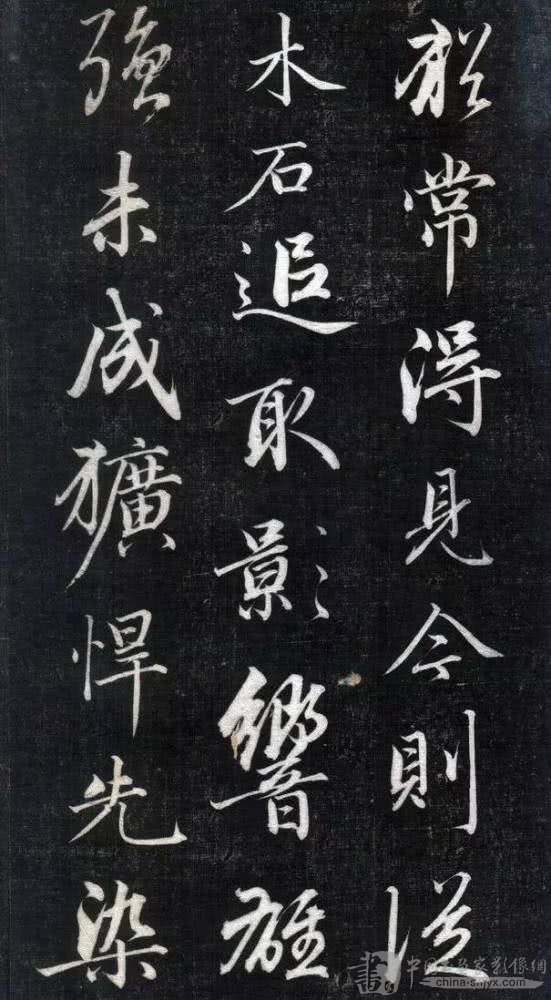 猶常得見今則從
木石追取影響雄
強未成獷悍先染
書 中国书画家影像網
china-shjyx.com